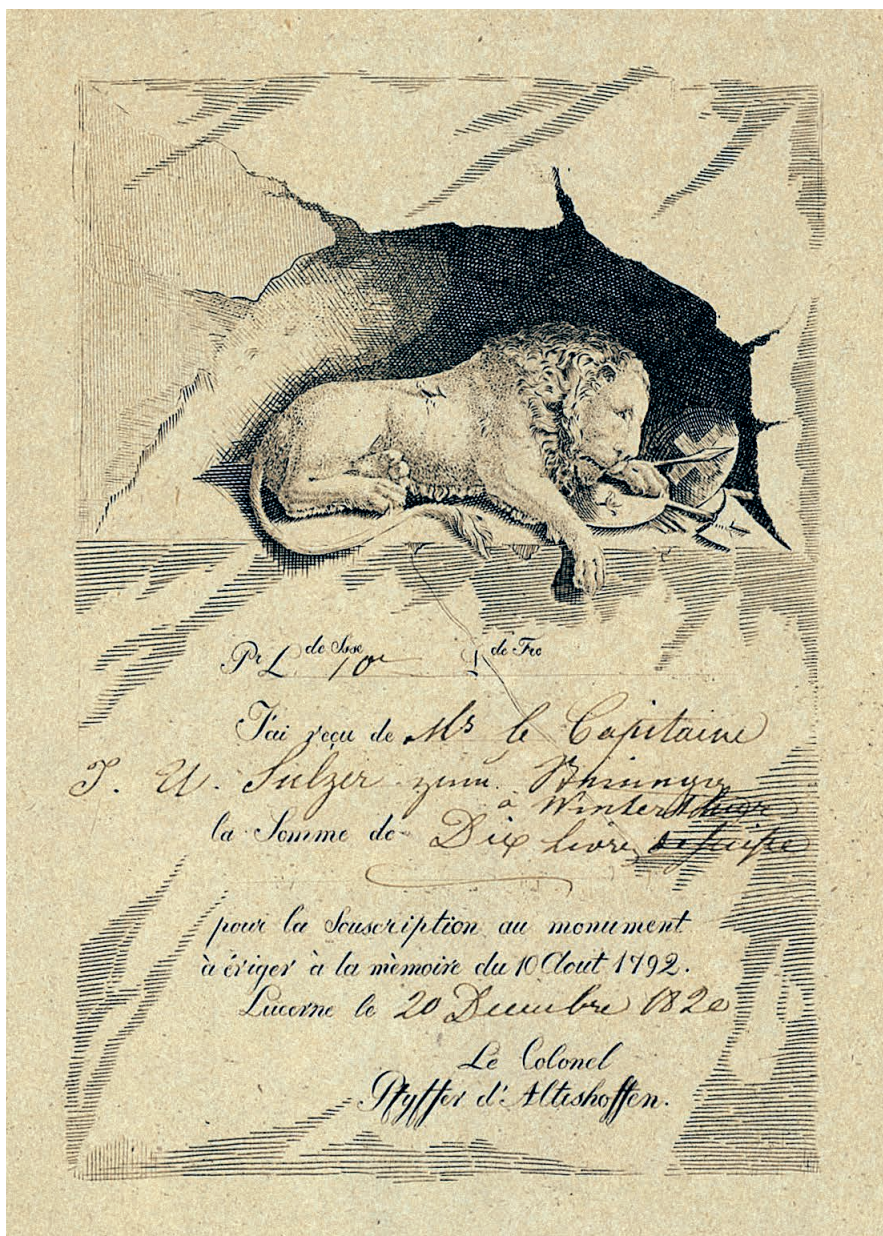 Pr L. de Sse 10 L de Fce
J'ai reçu de Mr le Capitaine
J. U. Sulzer zum
à Winterthur
la Somme de Dix livre de suisse
pour la Souscription au monument
à ériger à la mèmoire du 10 Aout 1792.
Lucerne le 20 Decembre 1820
Le Colonel
Pfyffer d'Altishoffen.